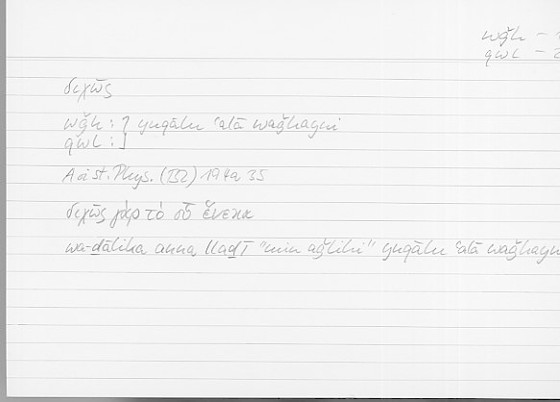 wǧh –
qwl – 2
διχῶς
wǧh : ] yuqālu ʿalā waǧhayni
qwl : ]
Aristt. Phys. (II2) 194a 35
διχῶς γὰρ τὸ οὗ ἕνεκα
wa-ḏālika anna llaḏī "min aǧlihī" yuqālu ʿalā waǧhayn